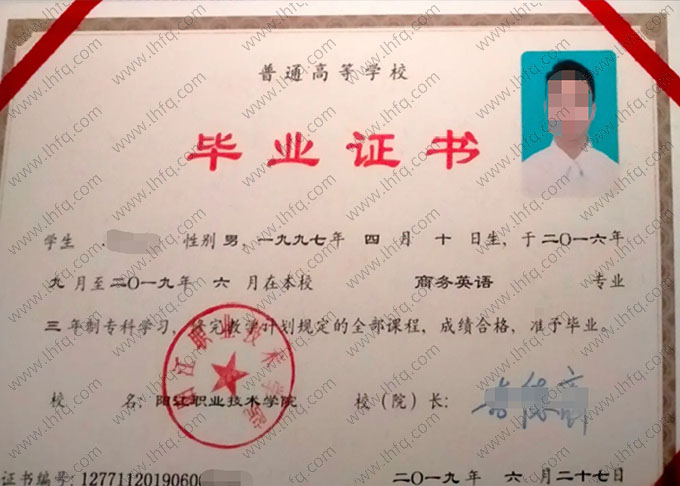 普通高等学校
毕业证书
学生 性别 男，一九九七年 四 月 十 日生，于二〇一六年
九 月至二〇一九年 六 月在本校 商务英语 专业
三 年制专科学习，修完教学计划规定的全部课程，成绩合格，准予毕业。
江职业技术学院
校 名：阳江职业技术学院 校（院）长：
证书编号：1277112019060
二〇一九年 六 月二十七日
www.lhfq.com